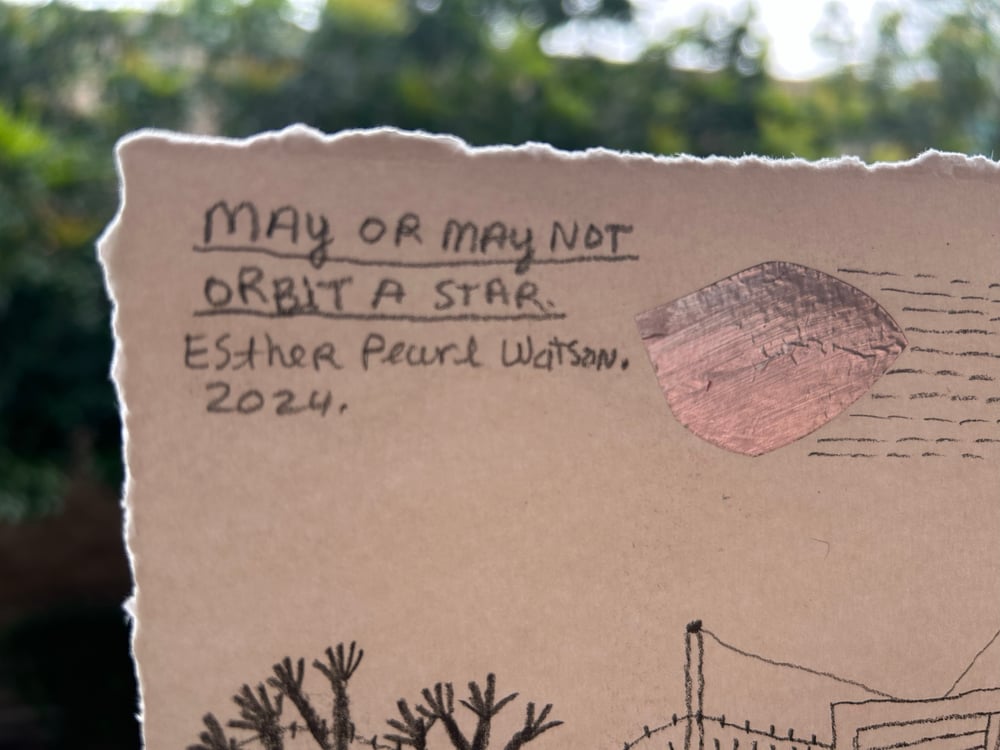 MAY OR MAY NOT
ORBIT A STAR.
Esther Pearl Watson.
2024.